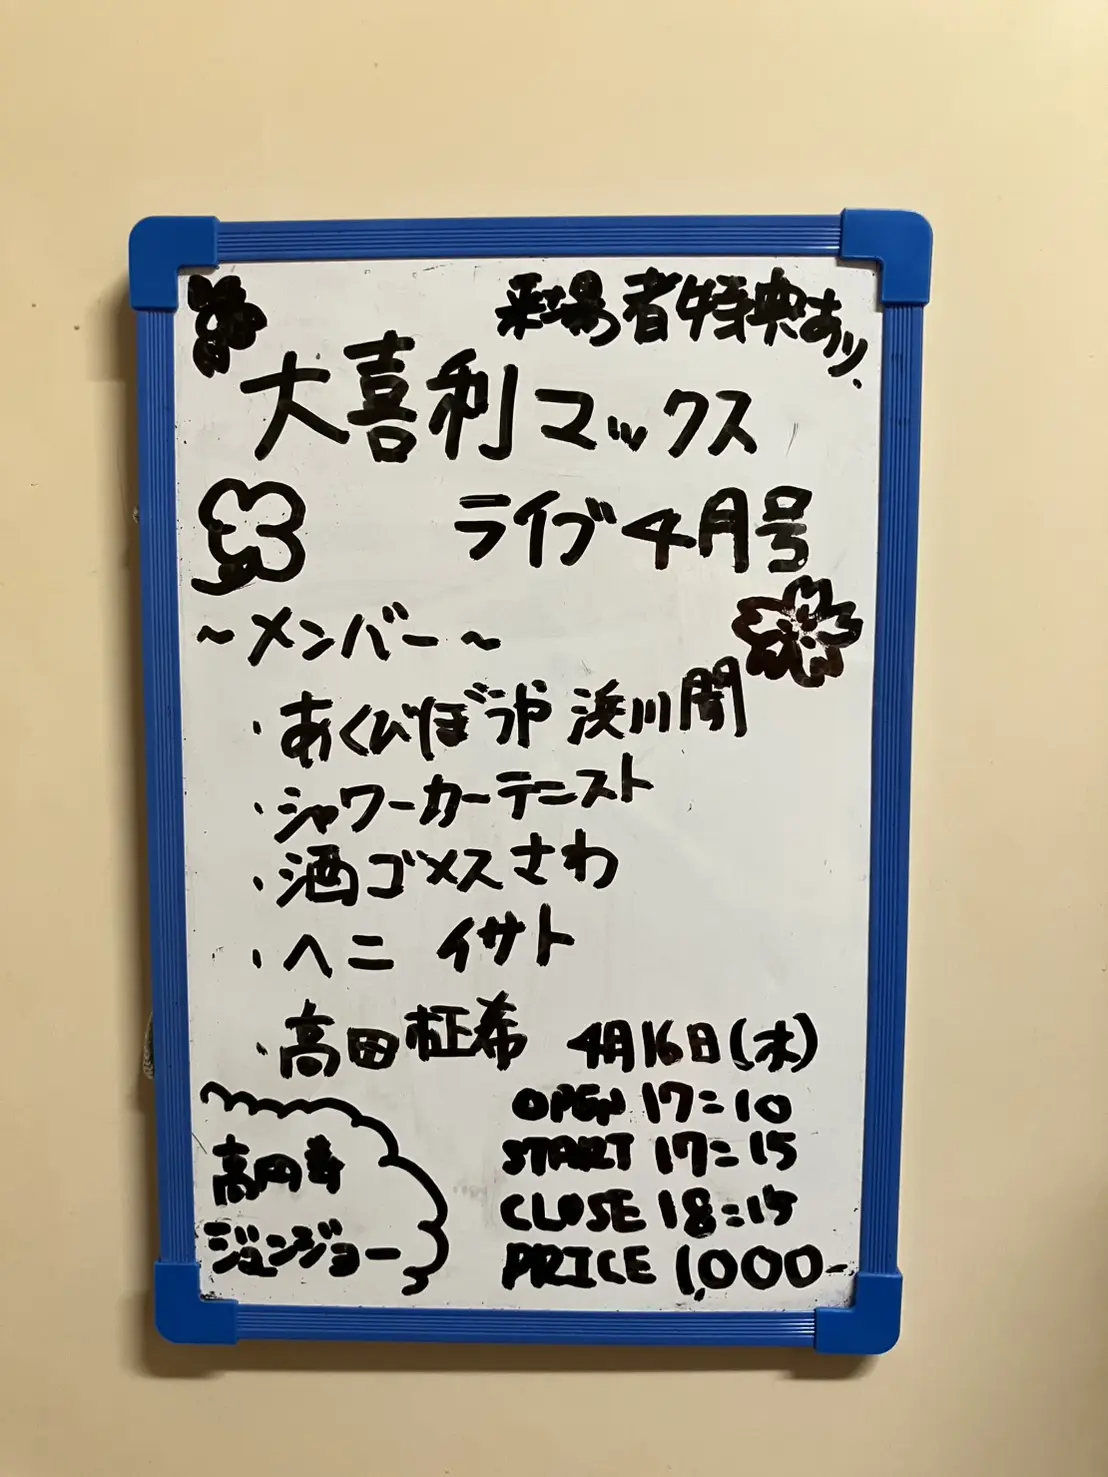 来場者特典あり.
大喜利マックス
ライブ4月号
~メンバー~
・あくびぼうや 浜川
・シャワーカーテニスト
・酒ゴメスさわ
・ヘニ イサト
・高田柾希
4月16日(水)
OPEN 17:10
START 17:15
CLOSE 18:15
PRICE 1,000-
高円寺
ジュンジョー